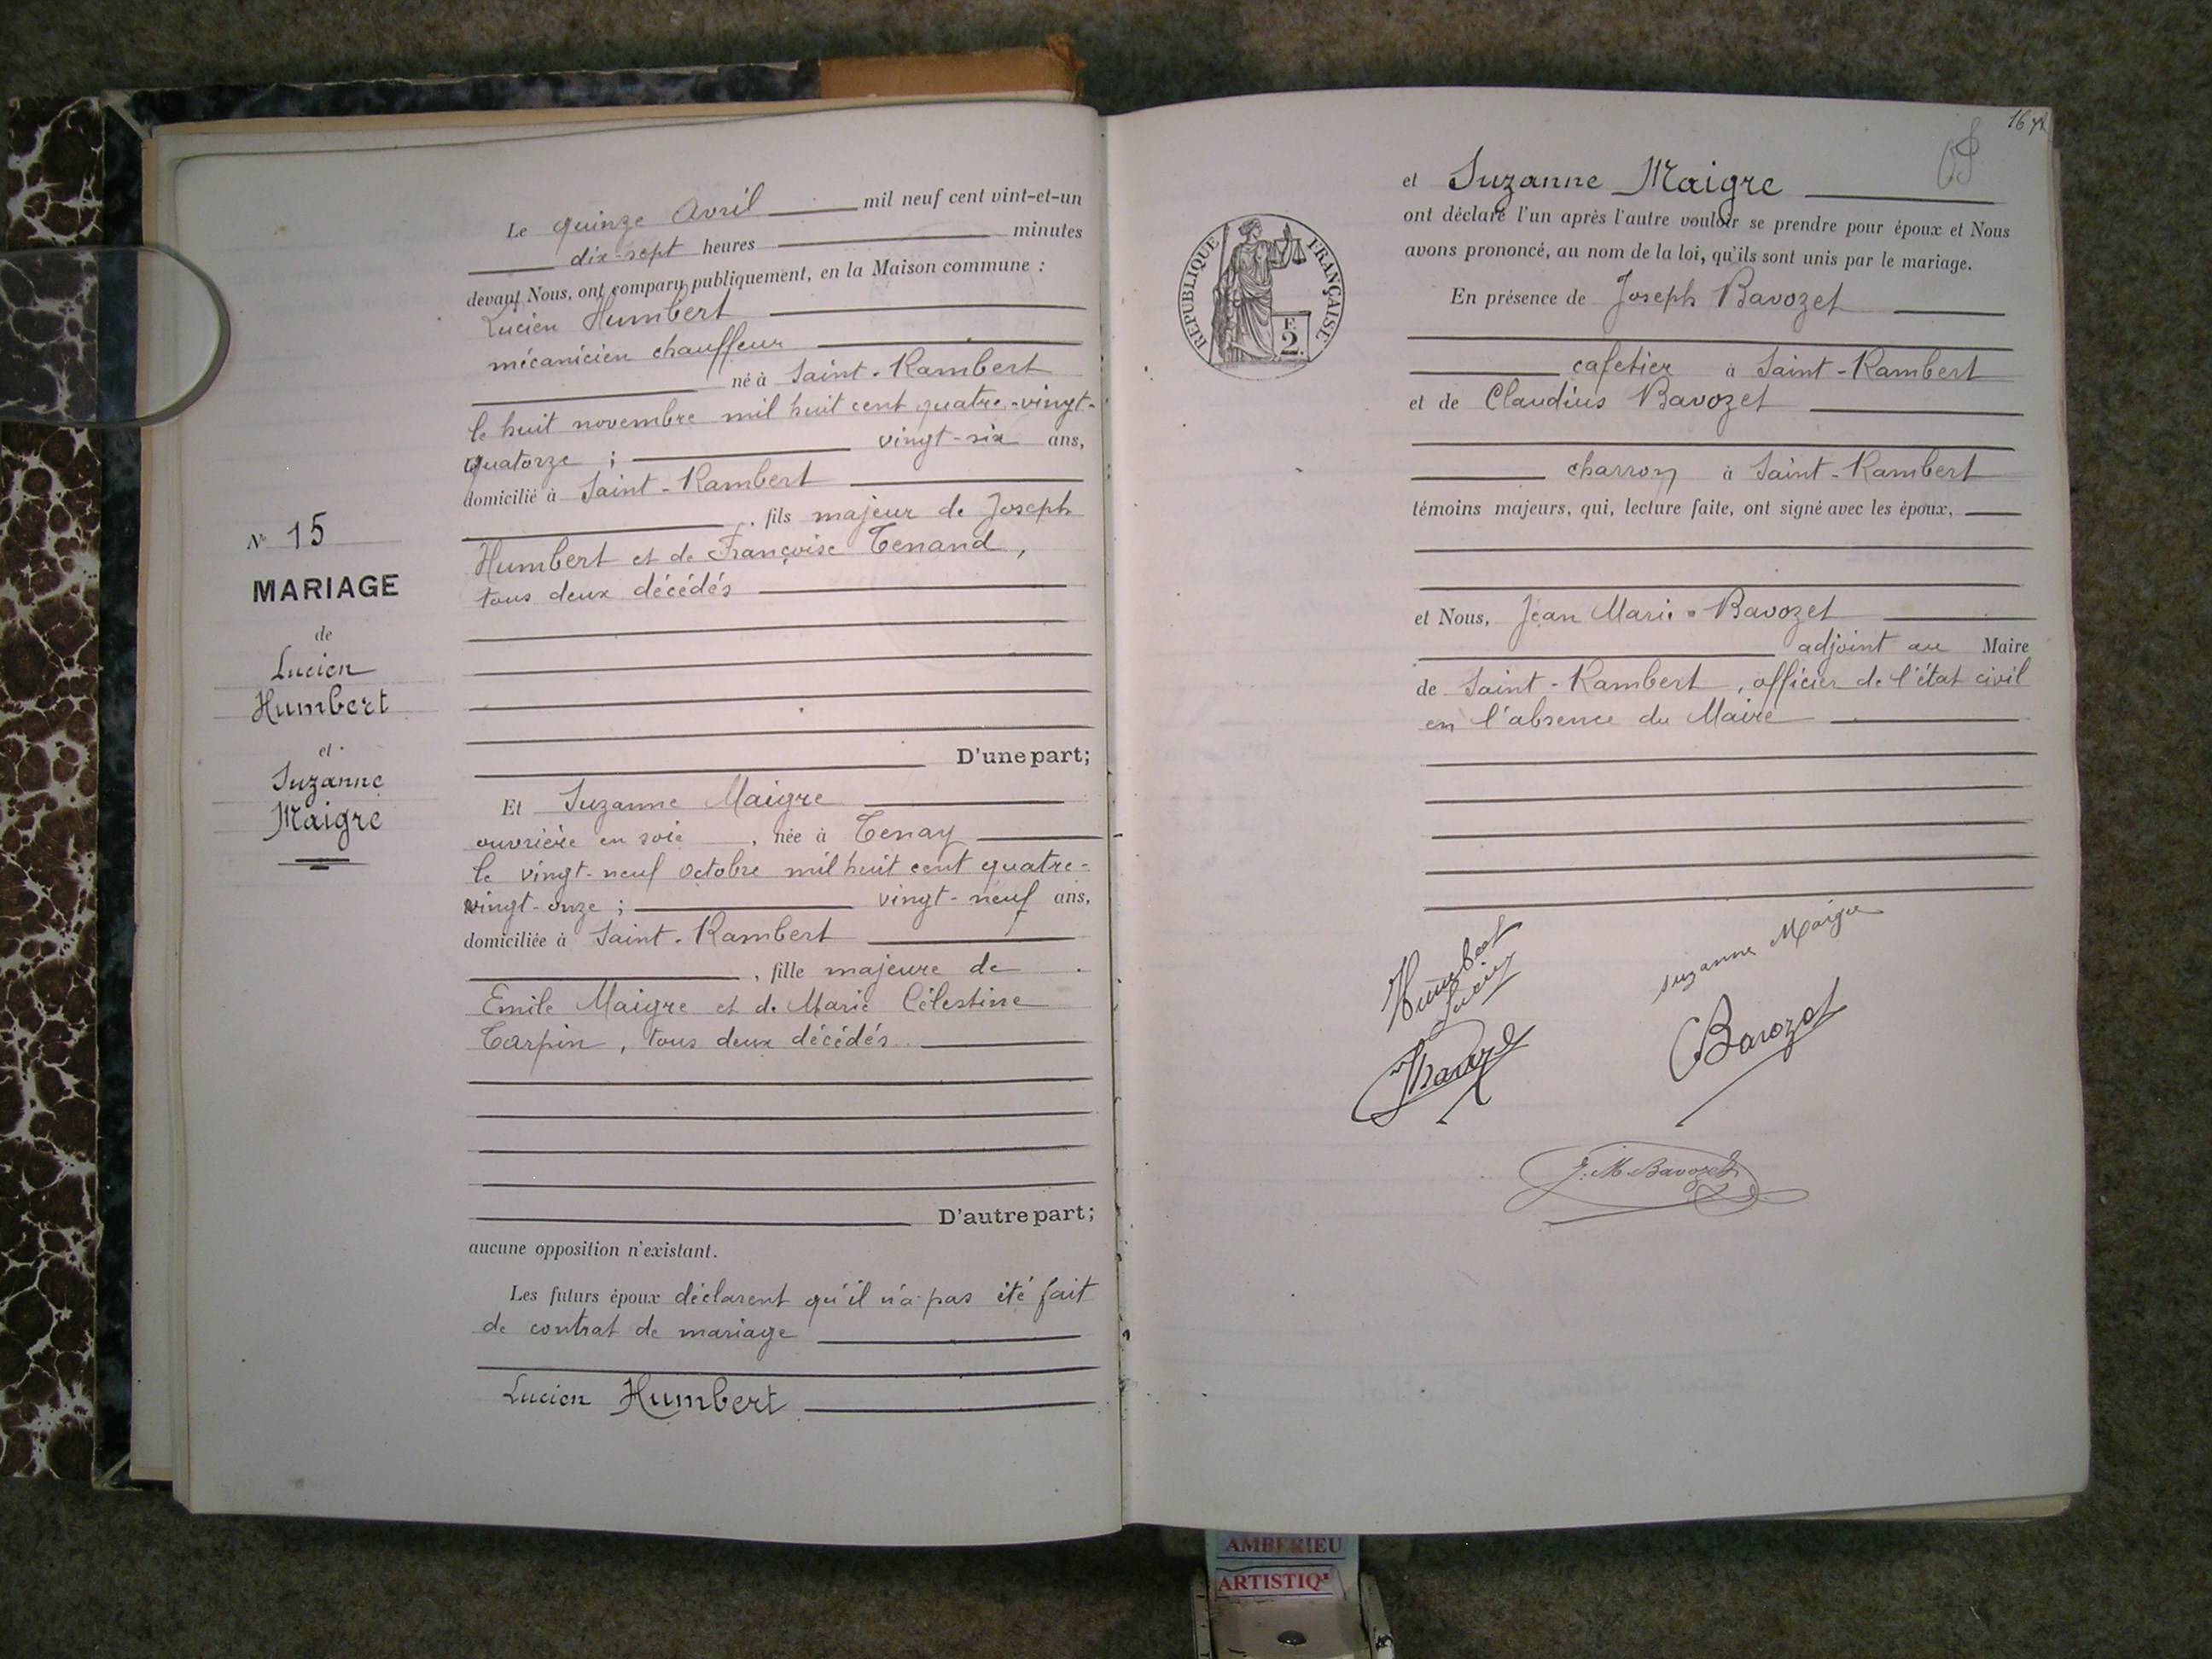 N° 15
MARIAGE
de
Lucien
Humbert
et
Suzanne
Maigre
Le quinze Avril mil neuf cent vint-et-un
dix-sept heures minutes
devant Nous, ont comparu publiquement, en la Maison commune :
Lucien Humbert
mécanicien chauffeur
né à Saint-Rambert
le huit novembre mil huit cent quatre-vingt-
quatorze ; vingt-six ans,
domicilié à Saint-Rambert
, fils majeur de Joseph
Humbert et de Françoise Tenand,
tous deux décédés
D'une part;
Et Suzanne Maigre
ouvrière en soie , née à Tenay
le vingt-neuf octobre mil huit cent quatre-
vingt-onze ; vingt-neuf ans,
domiciliée à Saint-Rambert
, fille majeure de
Emile Maigre et de Marie Célestine
Carpin, tous deux décédés
D'autre part;
aucune opposition n'existant.
Les futurs époux déclarent qu'il n'a pas été fait
de contrat de mariage
Lucien Humbert
et Suzanne Maigre
ont déclaré l'un après l'autre vouloir se prendre pour époux et Nous
avons prononcé, au nom de la loi, qu'ils sont unis par le mariage.
REPUBLIQUE FRANÇAISE
F.
2.
En présence de Joseph Bavozet
cafetier à Saint-Rambert
et de Claudius Bavozet
charron à Saint-Rambert
témoins majeurs, qui, lecture faite, ont signé avec les époux,
et Nous, Jean Marie Bavozet
adjoint au Maire
de Saint-Rambert, officier de l'état civil
en l'absence du Maire
Humbert
Lucien
suzanne Maigre
Bavozet
J. M. Bavozet
AMBERIEU
ARTISTIQ